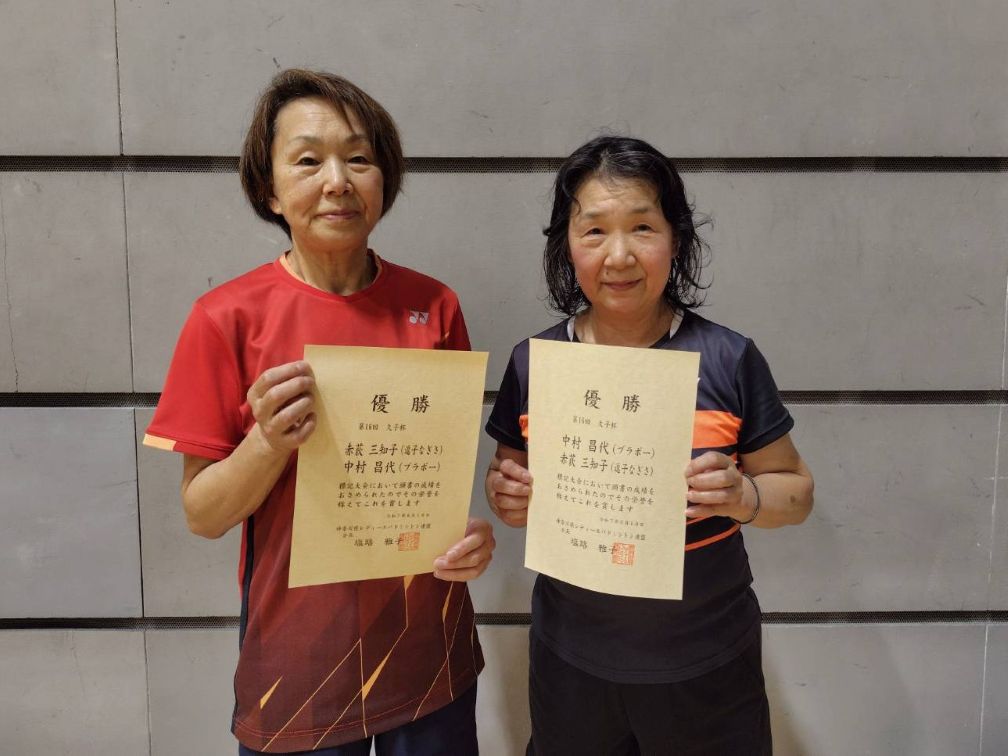 優勝
第16回 久子杯
赤荻 三知子(逗子なぎさ)
中村 昌代(ブラボー)
標記大会において頭書の成績を
おさめられたのでその栄誉を
称えてこれを賞します
神奈川県レディースバドミントン連盟
会長
塩路 雅子
優勝
第16回 久子杯
中村 昌代(ブラボー)
赤荻 三知子(逗子なぎさ)
標記大会において頭書の成績を
おさめられたのでその栄誉を
称えてこれを賞します
神奈川県レディースバドミントン連盟
会長
塩路 雅子